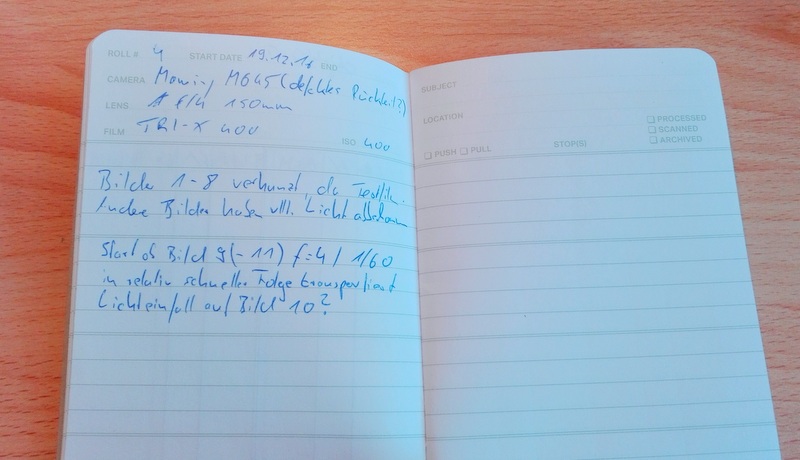 ROLL # 4 START DATE 19.12.1 END
CAMERA Mamiya M645 (defektes Rückteil?)
LENS f/4 150mm
FILM TRI-X 400 ISO 400
Bilder 1-8 verhunzt, da Testfilm.
Andere Bilder haben vllt. Licht abbekommen
Start ab Bild 9 (-11) f=4 / 1/60
in relativ schneller Folge transportiert
Lichteinfall auf Bild 10?
SUBJECT
LOCATION
PROCESSED
SCANNED
ARCHIVED
PUSH PULL STOP(S)